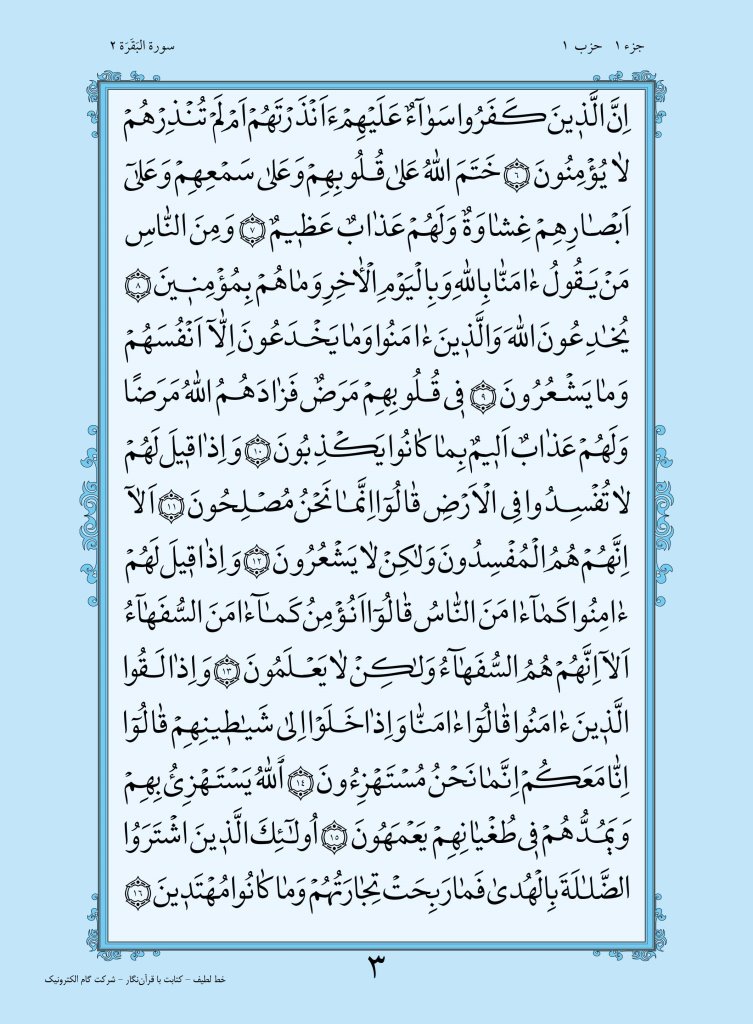 جزء ۱ حزب ۱
سورة البَقَرَة ۲
اِنَّ الَّذ۪ينَ كَفَرُوا سَوَٓاءٌ عَلَيْهِمْ ءَاَنْذَرْتَهُمْ اَمْ لَمْ تُنْذِرْهُمْ
لَا يُؤْمِنُونَ ﴿٦﴾ خَتَمَ اللّٰهُ عَلٰى قُلُوبِهِمْ وَعَلٰى سَمْعِهِمْ وَعَلٰٓى
اَبْصَارِهِمْ غِشَاوَةٌ وَلَهُمْ عَذَابٌ عَظ۪يمٌ ﴿٧﴾ وَمِنَ النَّاسِ
مَنْ يَقُولُ ءَامَنَّا بِاللّٰهِ وَبِالْيَوْمِ الْاٰخِرِ وَمَا هُمْ بِمُؤْمِن۪ينَ ﴿٨﴾
يُخَادِعُونَ اللّٰهَ وَالَّذ۪ينَ ءَامَنُوا وَمَا يَخْدَعُونَ اِلَّٓا اَنْفُسَهُمْ
وَمَا يَشْعُرُونَ ﴿٩﴾ ف۪ي قُلُوبِهِمْ مَرَضٌ فَزَادَهُمُ اللّٰهُ مَرَضًا
وَلَهُمْ عَذَابٌ اَل۪يمٌ بِمَا كَانُوا يَكْذِبُونَ ﴿١٠﴾ وَاِذَا ق۪يلَ لَهُمْ
لَا تُفْسِدُوا فِي الْاَرْضِ قَالُٓوا اِنَّمَا نَحْنُ مُصْلِحُونَ ﴿١١﴾ اَلَٓا
اِنَّهُمْ هُمُ الْمُفْسِدُونَ وَلٰكِنْ لَا يَشْعُرُونَ ﴿١٢﴾ وَاِذَا ق۪يلَ لَهُمْ
ءَامِنُوا كَمَٓا ءَامَنَ النَّاسُ قَالُٓوا اَنُؤْمِنُ كَمَٓا ءَامَنَ السُّفَهَٓاءُ
اَلَٓا اِنَّهُمْ هُمُ السُّفَهَٓاءُ وَلٰكِنْ لَا يَعْلَمُونَ ﴿١٣﴾ وَاِذَا لَقُوا
الَّذ۪ينَ ءَامَنُوا قَالُٓوا ءَامَنَّا وَاِذَا خَلَوْا اِلٰى شَيَاط۪ينِهِمْ قَالُٓوا
اِنَّا مَعَكُمْ اِنَّمَا نَحْنُ مُسْتَهْزِءُونَ ﴿١٤﴾ اَللّٰهُ يَسْتَهْزِئُ بِهِمْ
وَيَمُدُّهُمْ ف۪ي طُغْيَانِهِمْ يَعْمَهُونَ ﴿١٥﴾ اُولٰٓئِكَ الَّذ۪ينَ اشْتَرَوُا
الضَّلٰلَةَ بِالْهُدٰى فَمَا رَبِحَتْ تِجَارَتُهُمْ وَمَا كَانُوا مُهْتَد۪ينَ ﴿١٦﴾
٣
خط لطیف – کتابت با قرآن‌نگار – شرکت گام الکترونیک